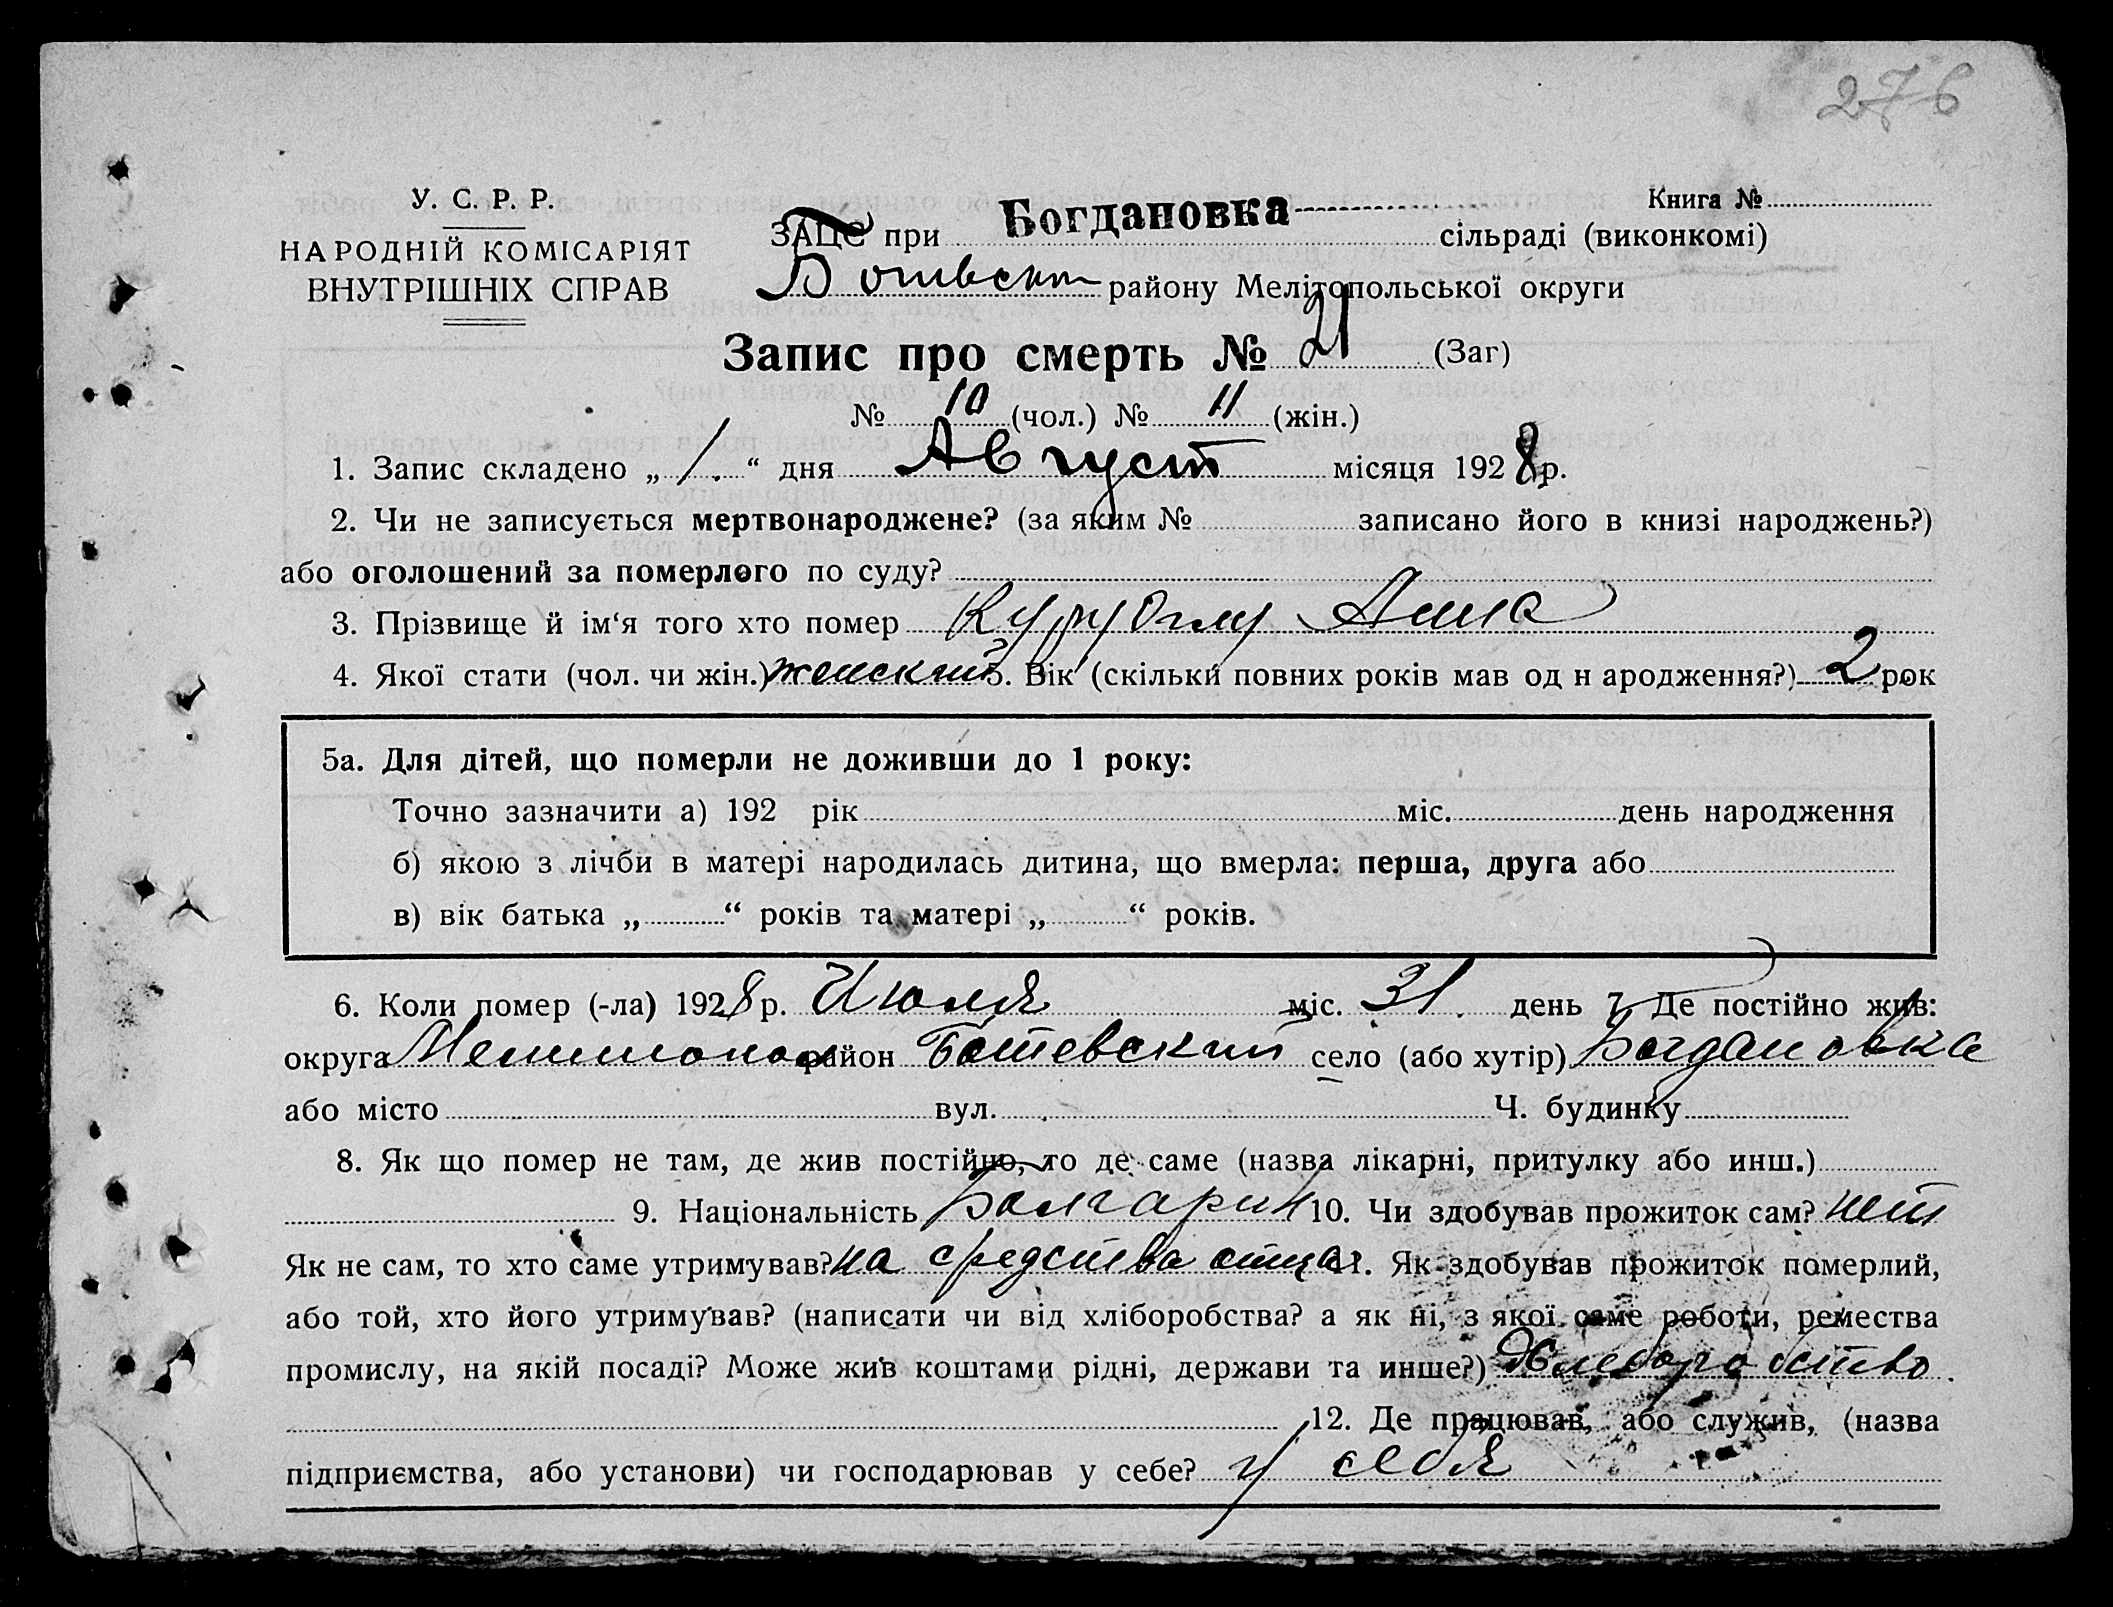 276
У. С. Р. Р.
НАРОДНІЙ КОМІСАРІЯТ
ВНУТРІШНІХ СПРАВ
Книга №
ЗАЦС при Богдановка сільраді (виконкомі)
Ботьвск району Мелітопольської округи
Запис про смерть № 21 (Заг)
№ 10 (чол.) № 11 (жін.)
1. Запис складено „ 1. “ дня Август місяця 1928 р.
2. Чи не записується мертвонароджене? (за яким № записано його в книзі народжень?)
або оголошений за померлого по суду?
3. Прізвище й ім‘я того хто помер Куру Оглу Анна
4. Якої стати (чол. чи жін.) женский 5. Вік (скільки повних років мав од н ародження?) 2 рок
5а. Для дітей, що померли не доживши до 1 року:
Точно зазначити а) 192 рік міс. день народження
б) якою з лічби в матері народилась дитина, що вмерла: перша, друга або
в) вік батька „ “ років та матері „ “ років.
6. Коли помер (-ла) 1928 р. Июля міс. 31. день 7. Де постійно жив:
округа Мелитопол район Ботевский село (або хутір) Богдановка
або місто вул. Ч. будинку
8. Як що помер не там, де жив постійно, то де саме (назва лікарні, притулку або инш.)
9. Національність Болгарин 10. Чи здобував прожиток сам? нет
Як не сам, то хто саме утримував? на средства отца 11. Як здобував прожиток померлий,
або той, хто його утримував? (написати чи від хліборобства? а як ні, з якої саме роботи, ремества
промислу, на якій посаді? Може жив коштами рідні, держави та инше?) Хлеборобство
12. Де працював, або служив, (назва
підприємства, або установи) чи господарював у себе? у себя